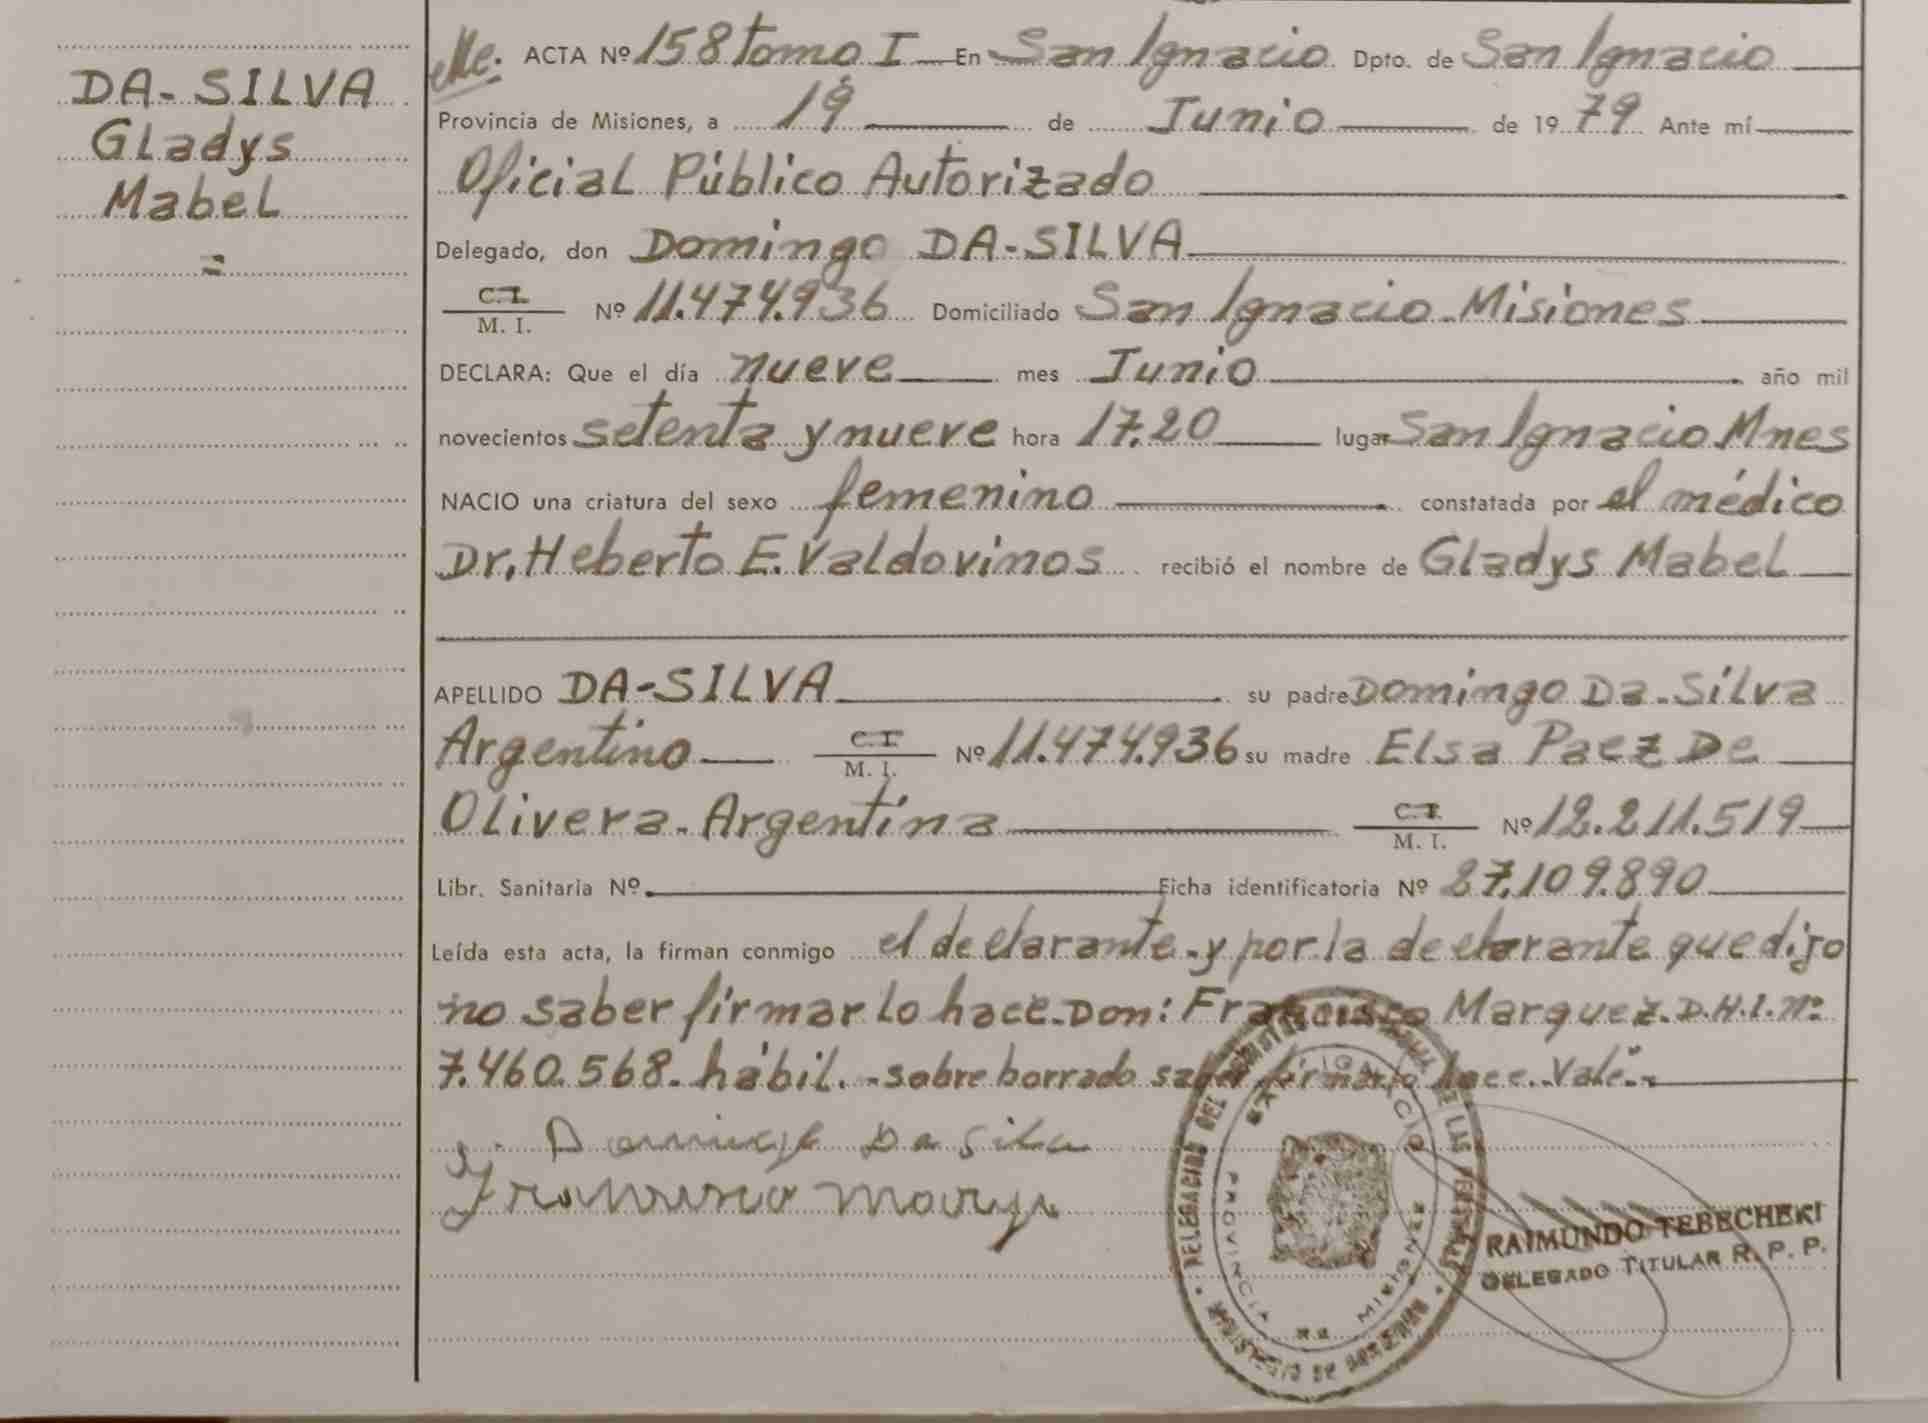 DA-SILVA
Gladys
Mabel
=
ACTA Nº 158 tomo I En San Ignacio Dpto. de San Ignacio
Provincia de Misiones, a 19 de Junio de 1979 Ante mí
Oficial Público Autorizado
Delegado, don Domingo DA-SILVA
C.I.
M. I. Nº 11.474.936 Domiciliado San Ignacio-Misiones
DECLARA: Que el día nueve mes Junio año mil
novecientos setenta y nueve hora 17.20 lugar San Ignacio Mnes
NACIO una criatura del sexo femenino constatada por el médico
Dr. Heberto E. Valdovinos recibió el nombre de Gladys Mabel
APELLIDO DA-SILVA su padre Domingo Da-Silva
Argentino C.I.
M. I. Nº 11.474.936 su madre Elsa Paez De
Olivera-Argentina C.I.
M. I. Nº 12.211.519
Libr. Sanitaria Nº Ficha identificatoria Nº 27.109.890
Leída esta acta, la firman conmigo el declarante-y por la declarante que dijo
no saber firmar lo hace-Don: Francisco Marquez-D.N.I.Nº
7.460.568-hábil.-sobre borrado saber firmar lo hace-Vale.-
Domingo Da Silva
Francisco
DELEGACION DEL REGISTRO DE LAS PERSONAS
SAN IGNACIO
PROVINCIA DE MISIONES
RAIMUNDO TEBECHERI
DELEGADO TITULAR R. P. P.